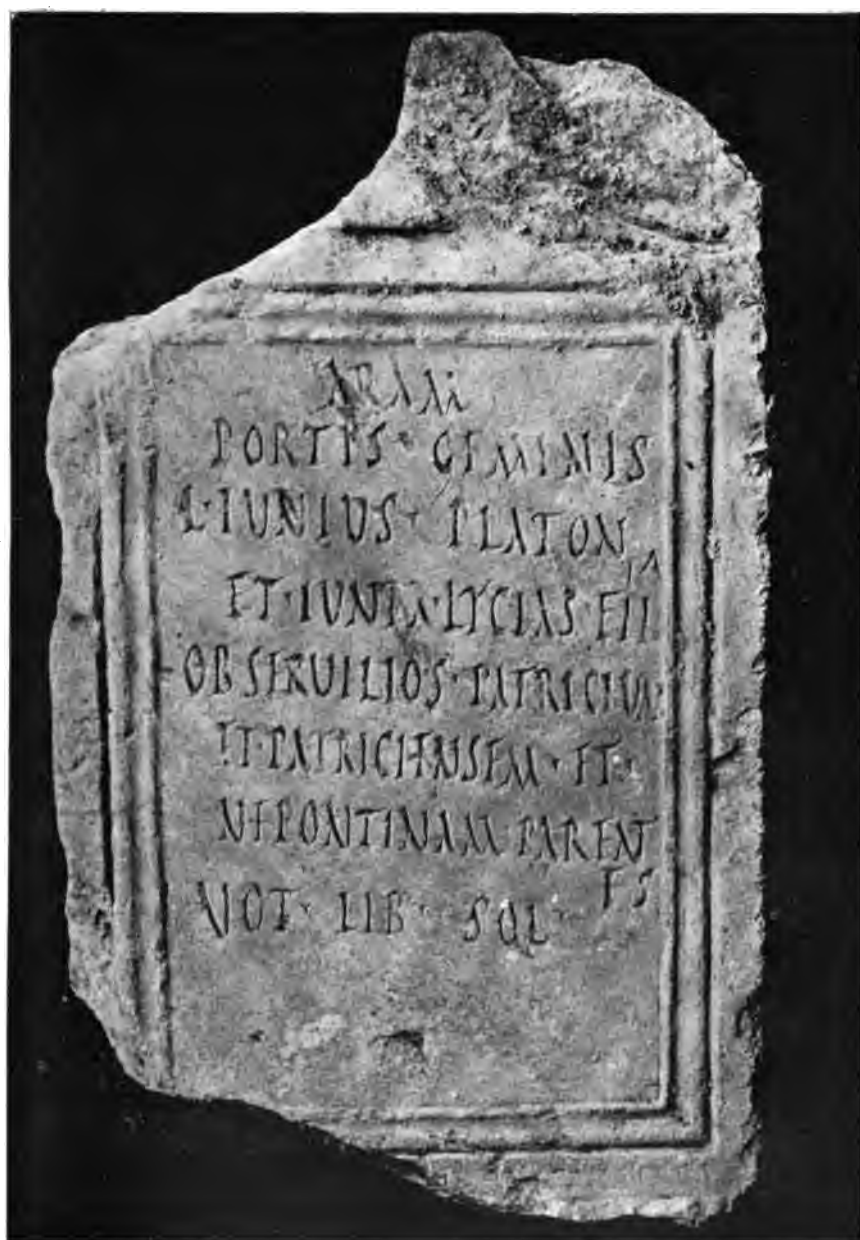 ARAM
PORTIS · GEMINIS
L · IUNIUS · PLATON
ET · IUNIA · LYCIAS · FIL IA
OB SERUILIOS · PATRICIUM
ET · PATRICIENSEM · ET ·
NEPONTINAM PARENT
ES
VOT · LIB · SOL ·